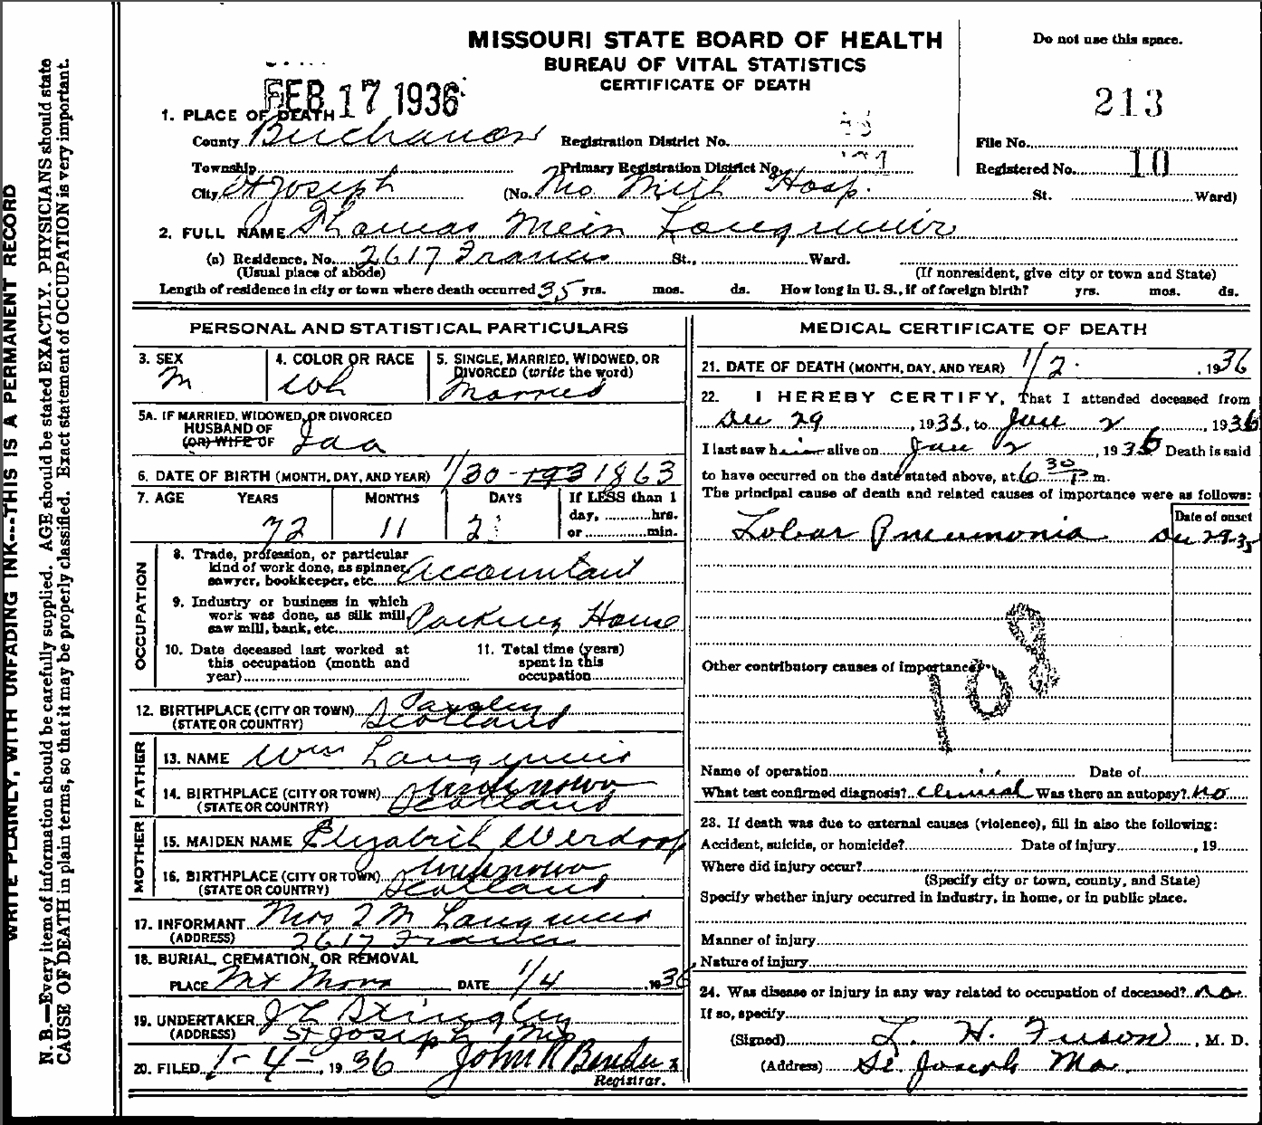 MISSOURI STATE BOARD OF HEALTH
BUREAU OF VITAL STATISTICS
CERTIFICATE OF DEATH
Do not use this space.
FEB 17 1936
213
1. PLACE OF DEATH
County Buchanan Registration District No.
File No.
Township Primary Registration District No.
Registered No. 10
City St Joseph (No. Mo Meth Hosp. St. Ward)
2. FULL NAME Thomas Mein Langmuir
(a) Residence, No. 2617 Francis St., Ward.
(Usual place of abode) (If nonresident, give city or town and State)
Length of residence in city or town where death occurred 35 yrs. mos. ds. How long in U. S., if of foreign birth? yrs. mos. ds.
PERSONAL AND STATISTICAL PARTICULARS
3. SEX M
4. COLOR OR RACE Wh
5. SINGLE, MARRIED, WIDOWED, OR DIVORCED (write the word) Married
5A. IF MARRIED, WIDOWED, OR DIVORCED
HUSBAND OF
(OR) WIFE OF Ida
6. DATE OF BIRTH (MONTH, DAY, AND YEAR) 1/30 - 1863
7. AGE YEARS MONTHS DAYS If LESS than 1
day, hrs.
or min.
72 11 2
OCCUPATION
8. Trade, profession, or particular
kind of work done, as spinner,
sawyer, bookkeeper, etc. Accountant
9. Industry or business in which
work was done, as silk mill,
saw mill, bank, etc. Packing House
10. Date deceased last worked at
this occupation (month and
year)
11. Total time (years)
spent in this
occupation
12. BIRTHPLACE (CITY OR TOWN)
(STATE OR COUNTRY) Scotland
FATHER
13. NAME Wm Langmuir
14. BIRTHPLACE (CITY OR TOWN) Unknown
(STATE OR COUNTRY) Scotland
MOTHER
15. MAIDEN NAME Elizabeth
16. BIRTHPLACE (CITY OR TOWN) Unknown
(STATE OR COUNTRY) Scotland
17. INFORMANT Mrs T M Langmuir
(ADDRESS) 2617 Francis
18. BURIAL, CREMATION, OR REMOVAL
PLACE Mt Mora DATE 1/4 1936
19. UNDERTAKER
(ADDRESS) St Joseph, Mo
20. FILED 1-4-, 1936 John R Bender
Registrar.
MEDICAL CERTIFICATE OF DEATH
21. DATE OF DEATH (MONTH, DAY, AND YEAR) 1/2 , 1936
22. I HEREBY CERTIFY, That I attended deceased from
Dec 29, 1935, to Jan 2, 1936
I last saw him alive on Jan 2, 1936 Death is said
to have occurred on the date stated above, at 6 30 P m.
The principal cause of death and related causes of importance were as follows:
Date of onset
Lobar Pneumonia Dec 29-35
Other contributory causes of importance:
108
Name of operation Date of
What test confirmed diagnosis? Clinical Was there an autopsy? no
23. If death was due to external causes (violence), fill in also the following:
Accident, suicide, or homicide? Date of injury , 19
Where did injury occur?
(Specify city or town, county, and State)
Specify whether injury occurred in industry, in home, or in public place.
Manner of injury
Nature of injury
24. Was disease or injury in any way related to occupation of deceased? no
If so, specify
(Signed) L. H. Fuson, M. D.
(Address) St. Joseph Mo.
WRITE PLAINLY, WITH UNFADING INK---THIS IS A PERMANENT RECORD
N. B.—Every item of information should be carefully supplied. AGE should be stated EXACTLY. PHYSICIANS should state
CAUSE OF DEATH in plain terms, so that it may be properly classified. Exact statement of OCCUPATION is very important.